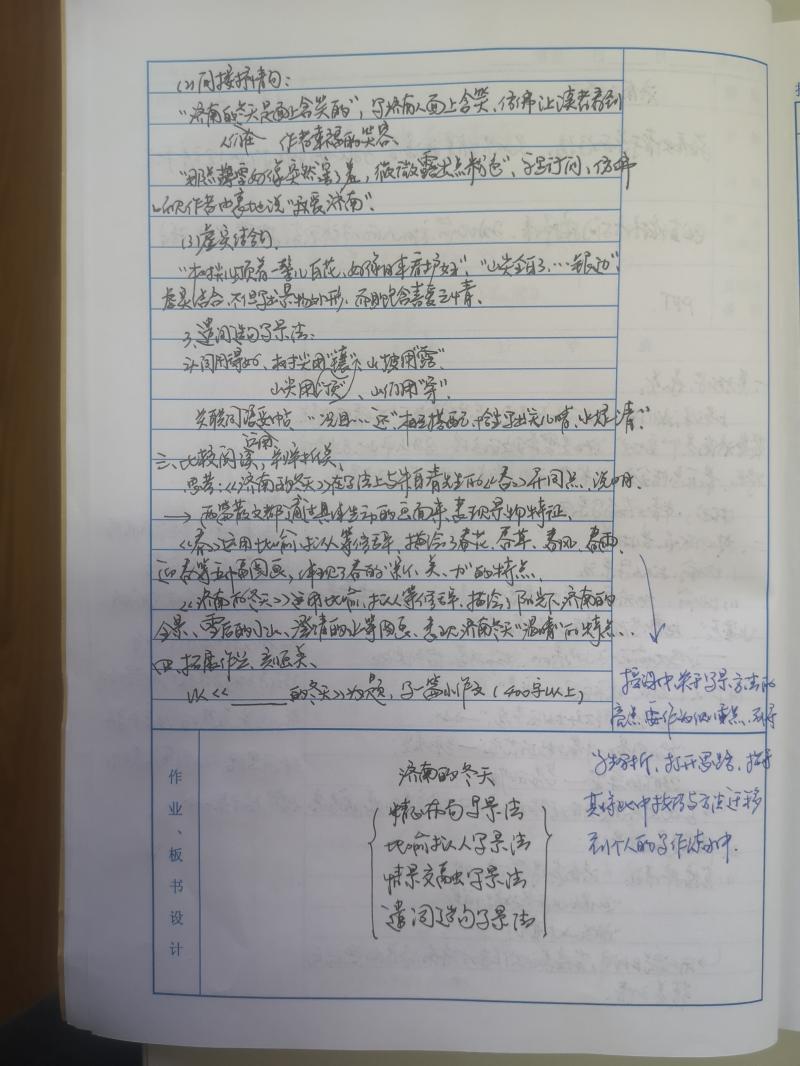 (2)间接抒情句：
“济南的冬天是面上含笑的”，写济南人面上含笑，仿佛让读者看到
作者幸福的笑容。
“那点薄雪好像突然害了羞，微微露出点粉色”，字里行间，仿佛
作者由衷地说“我爱济南”。
(3)虚实结合句
“树尖儿顶着一髻儿白花，好像日本看护妇”，“山尖全白了…银边”，
虚实结合，不但写出景物外形，而且饱含喜爱之情。
3、遣词造句写景法：
动词用得好，树尖用“顶”、山坡用“露”
山尖用“镶”、山们用“穿”
关联词语妥帖 “况且…还”相互搭配，
三、比较阅读，
运用
思考：《济南的冬天》在写法上与朱自清先生的《春》有何异同点，说明。
→ 两篇散文都通过具体生动的画面来表现景物特征。
《春》运用比喻、拟人等修辞，描绘了春花、春草、春风、春雨、
迎春等五幅图画，体现了春的“新、美、力”的特点。
《济南的冬天》运用比喻、拟人等修辞，描绘了阳光下济南的
全景、雪后的小山、澄清的水等图画，表现济南冬天“温晴”的特点。
四、拓展作业、
以《______的冬天》为题，写一篇小作文（400字以上）
授课中关于写景方法的
亮点要作为 重点，引导
学生分析，打开思路，指导
其将 中技巧与方法迁移
到个人的写作练习中。
作业、板书设计
济南的冬天
特征布局写景法
比喻拟人写景法
情景交融写景法
遣词造句写景法